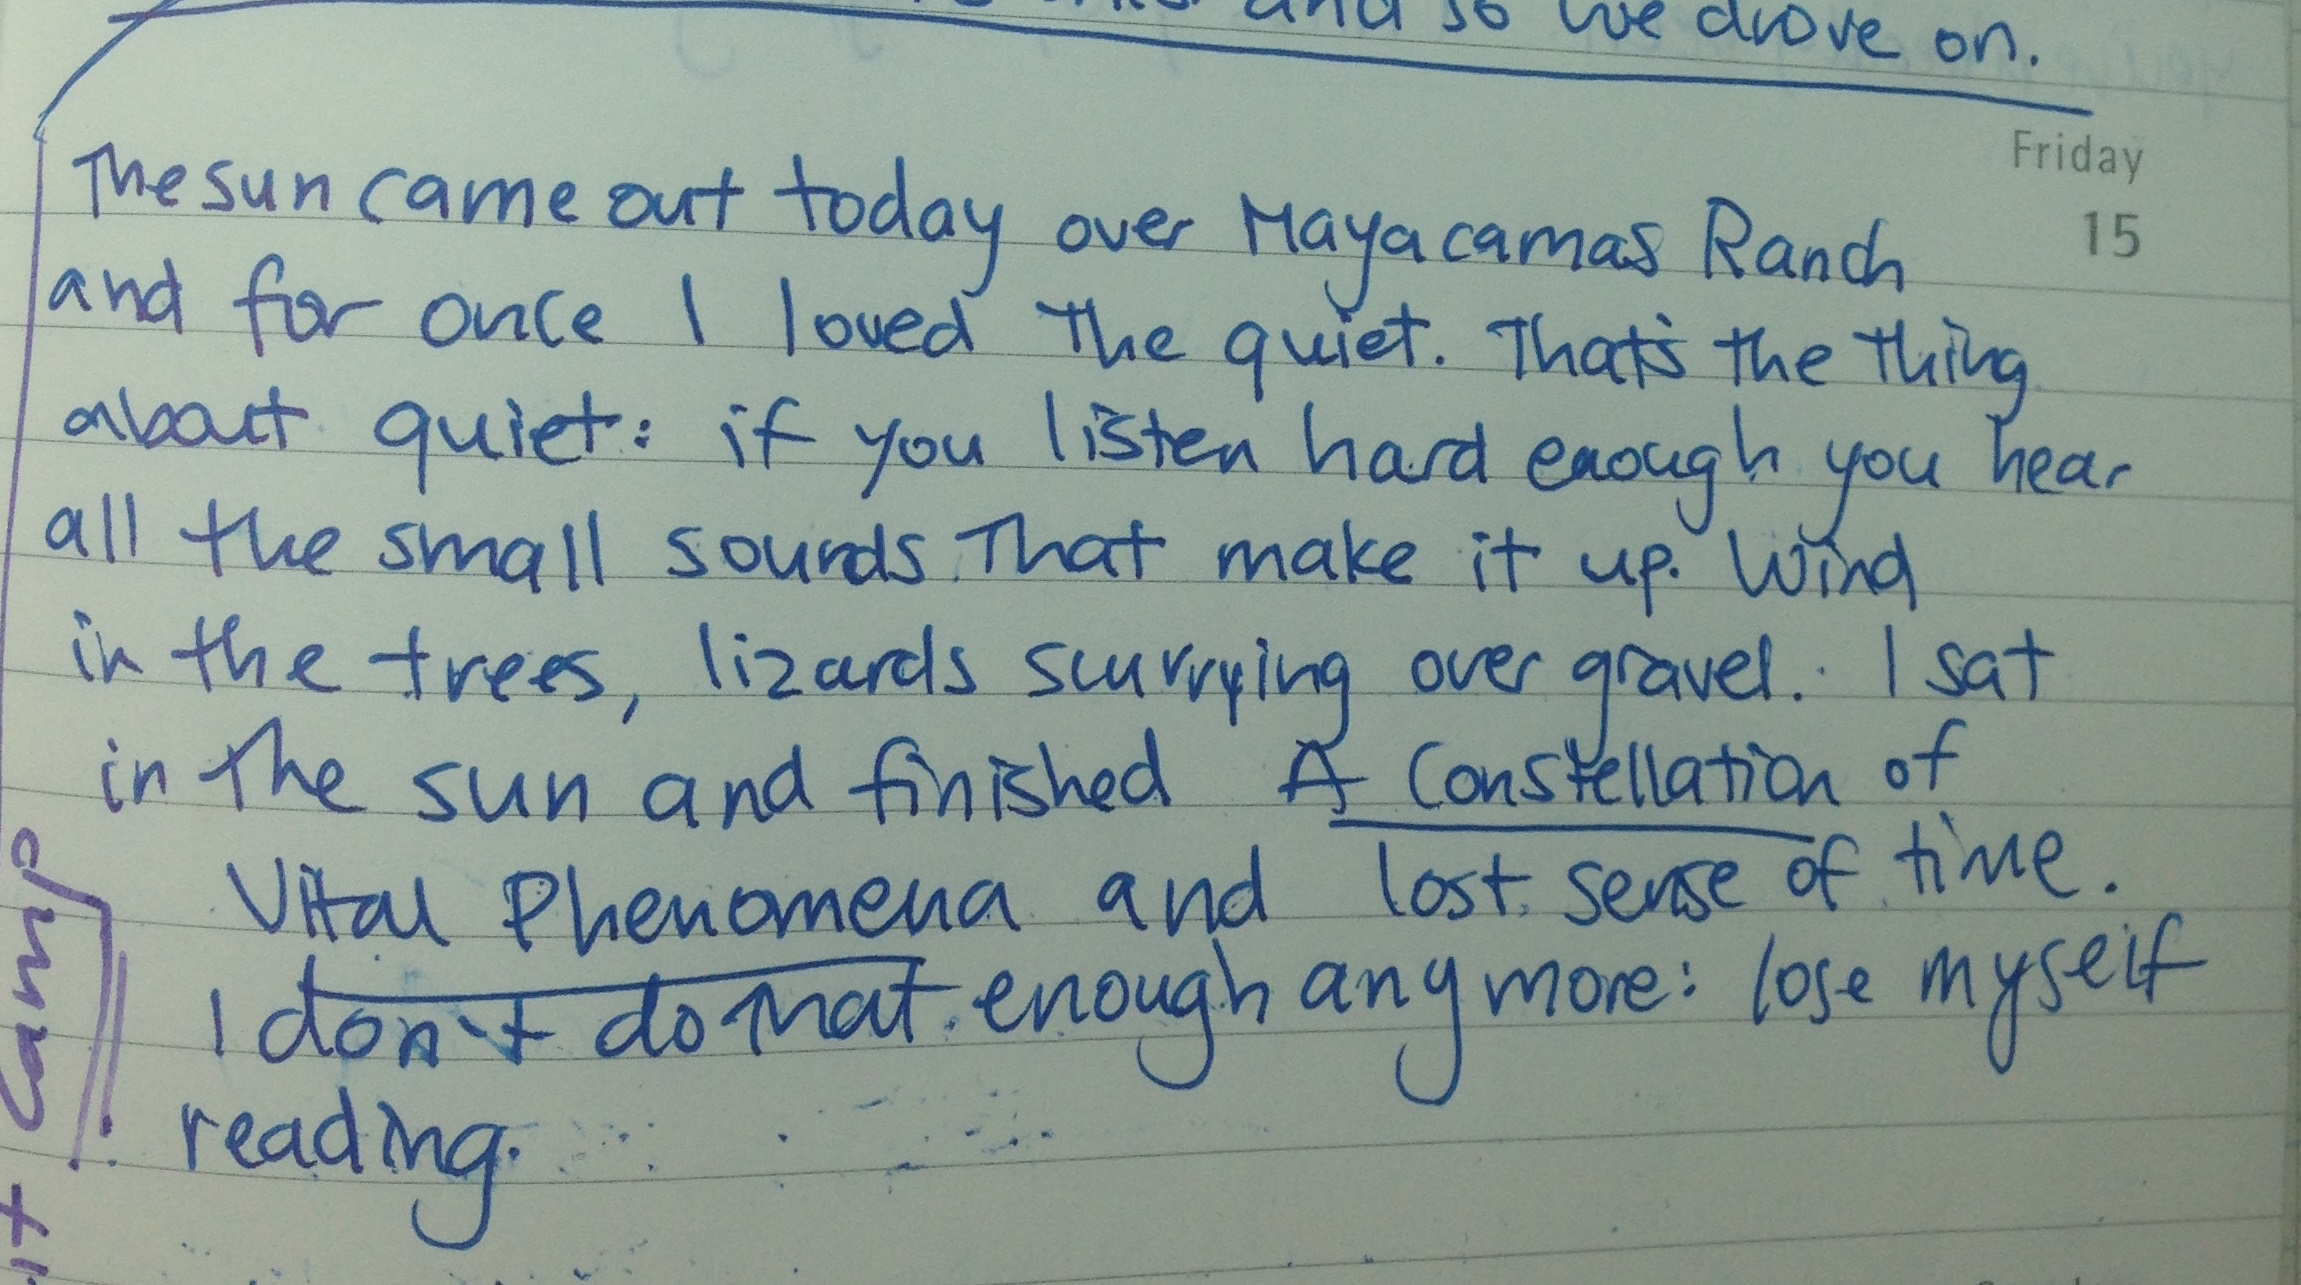 and so we drove on.
Friday
15
The sun came out today over Mayacamas Ranch
and for once I loved the quiet. That's the thing
about quiet: if you listen hard enough you hear
all the small sounds that make it up. Wind
in the trees, lizards scurrying over gravel. I sat
in the sun and finished A Constellation of
Vital Phenomena and lost sense of time.
I don't do that enough anymore: lose myself
reading.
camp